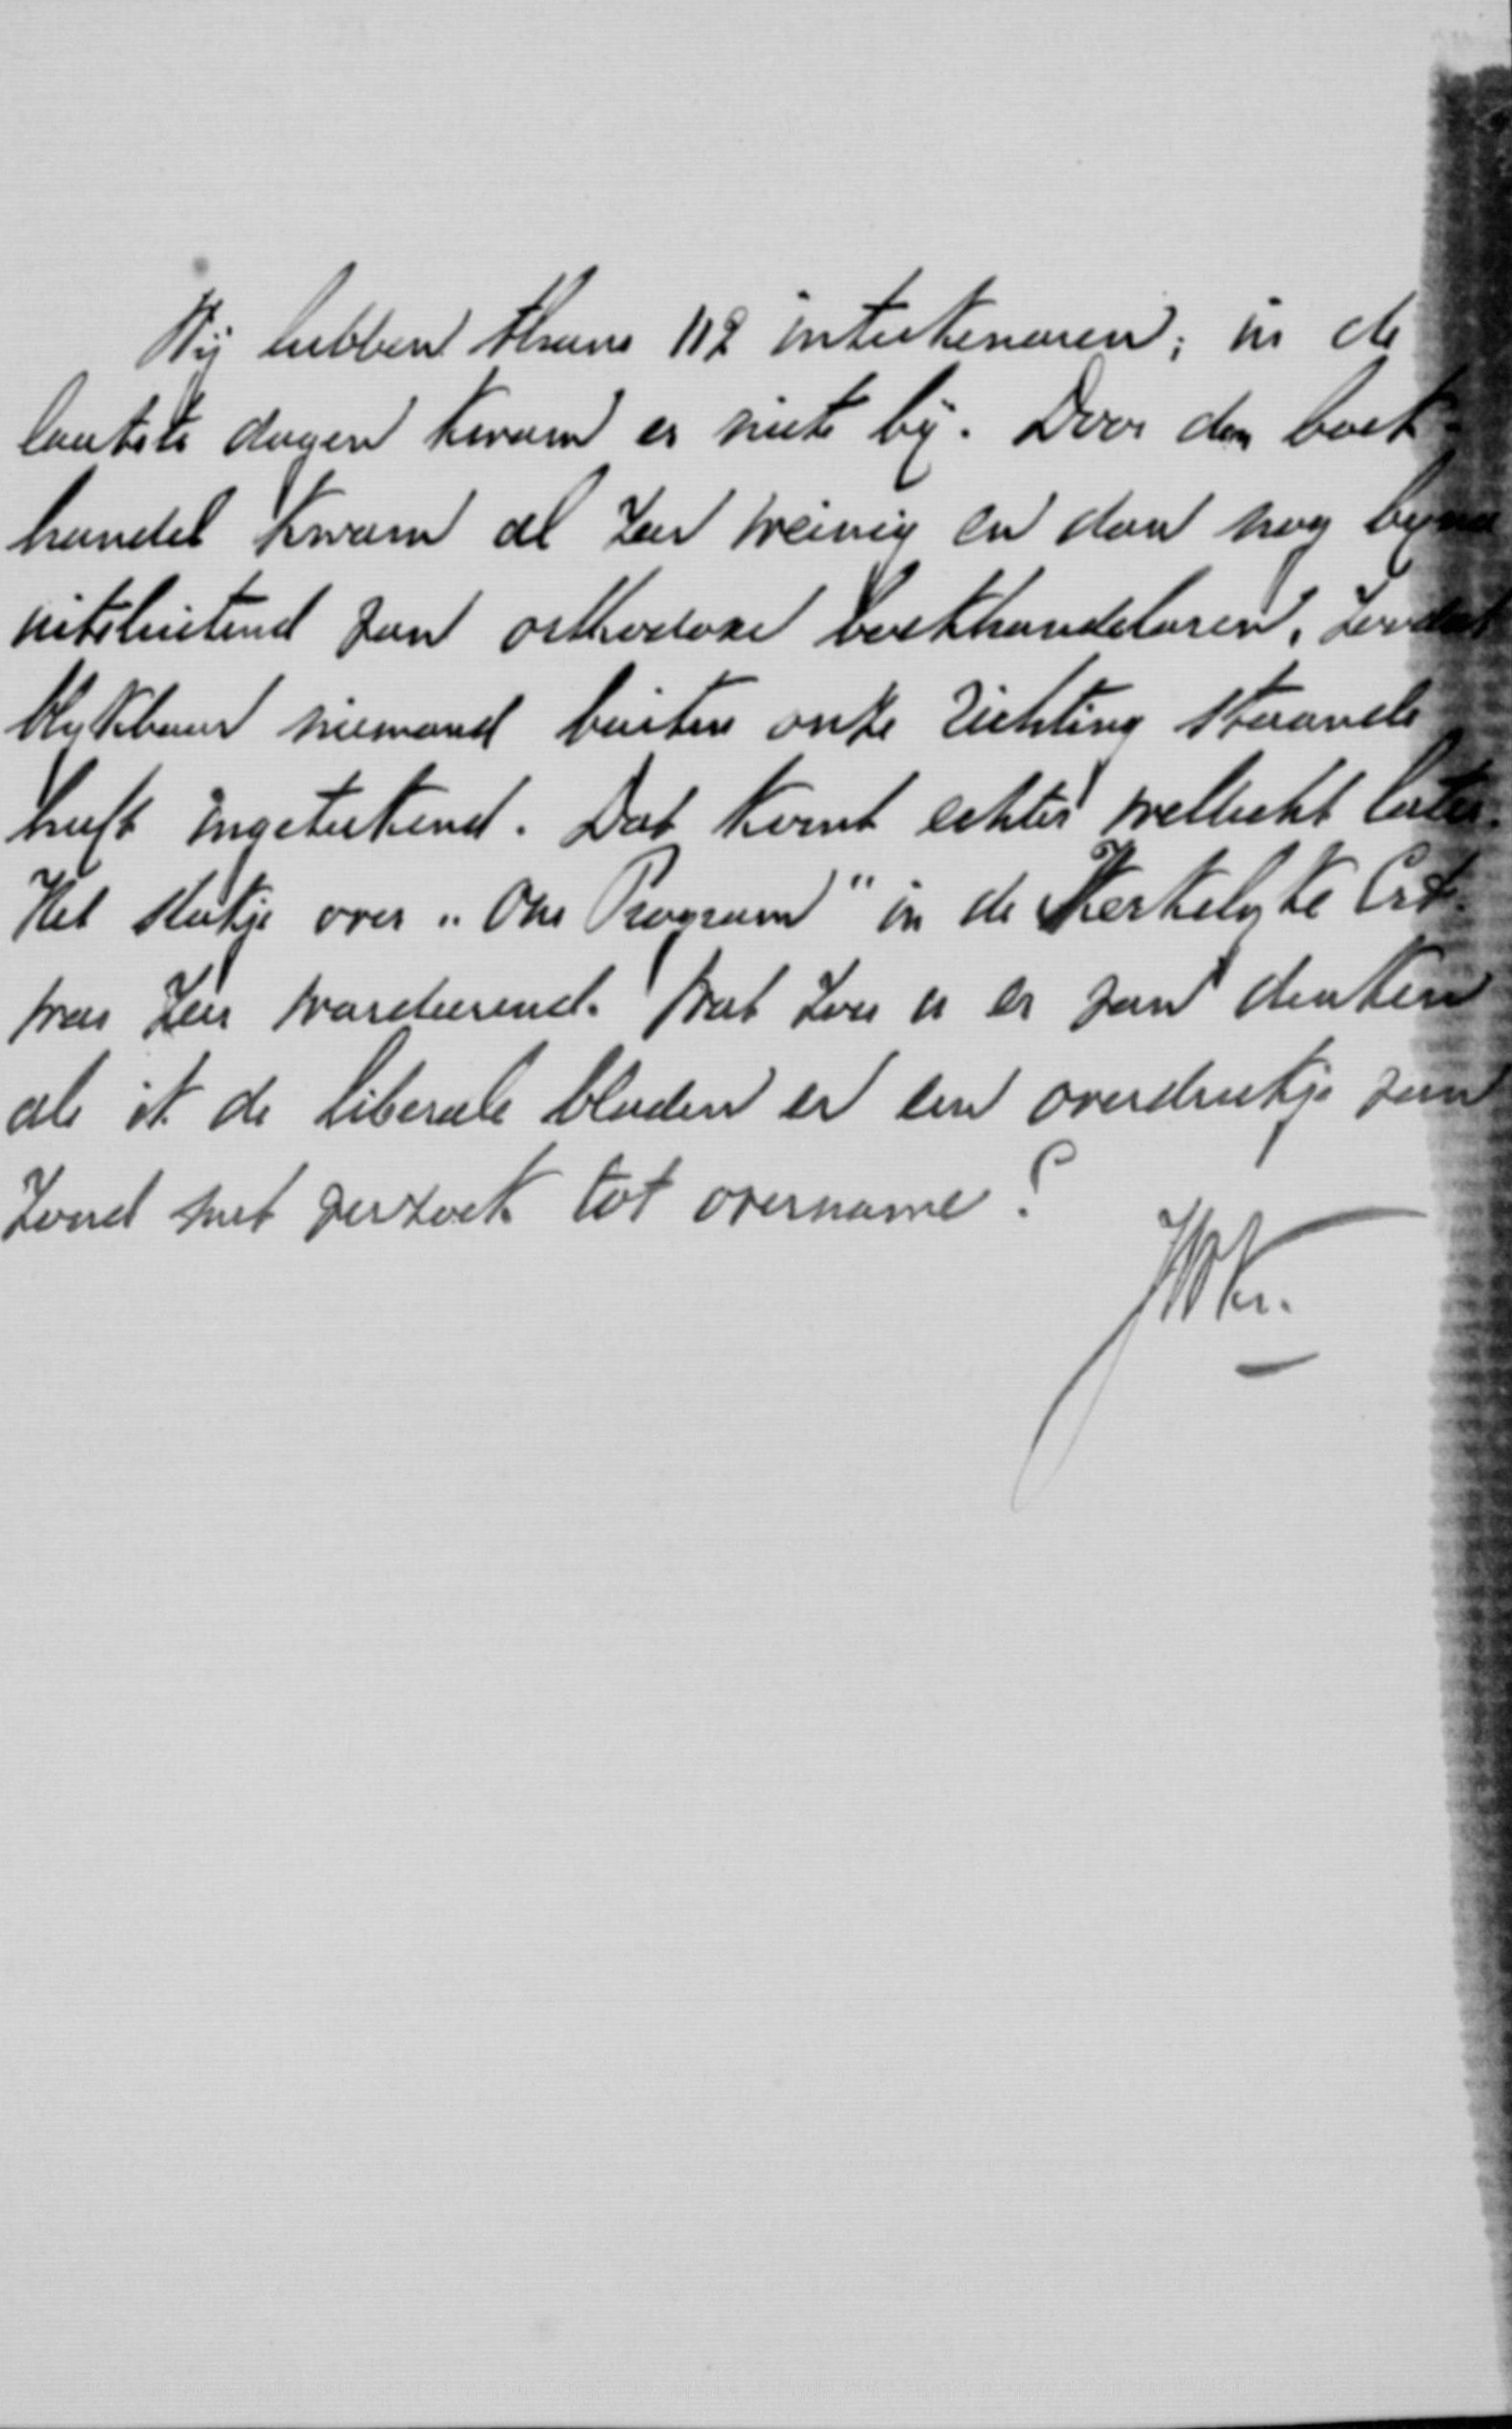 Wij hebben thans 112 inteekenaren; in de
laatste dagen kwam er niets bij. Door den boek-
handel kwam al zeer weinig en dan nog byna
uitsluitend van orthodoxe boekhandelaren, zoodat
blykbaar niemand buiten onze richting staande
heeft ingeteekend. Dat komt echter wellicht later.
Het stukje over „Ons Program" in de Kerkelyke Crt.
was zeer waardeerend. Wat zou u er van denken
als ik de liberale bladen er een overdrukje van
zond met verzoek tot overname?
JHKr.